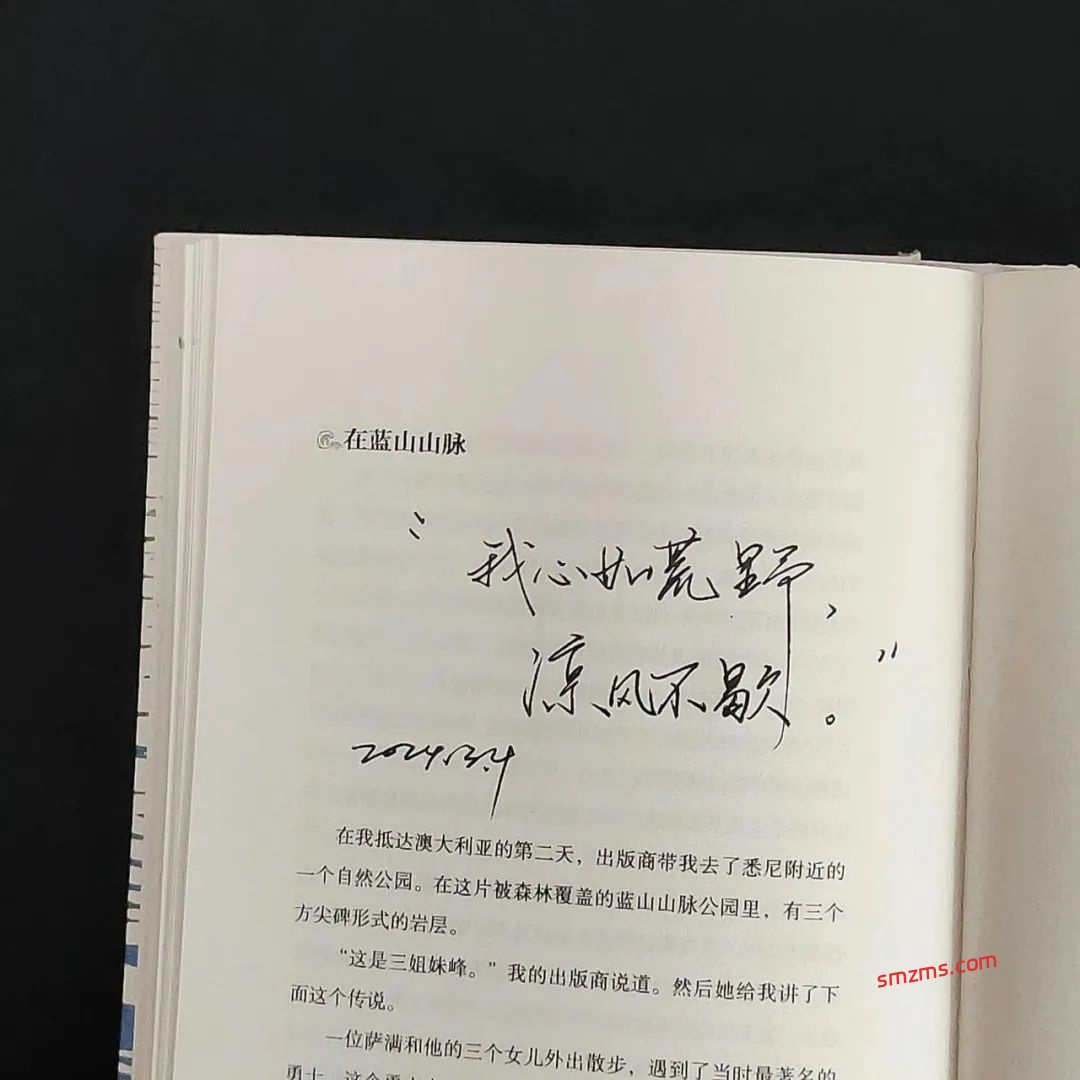 在蓝山山脉
“我心如荒野，
凉风不歇。”
2024.3.4
在我抵达澳大利亚的第二天，出版商带我去了悉尼附近的
一个自然公园。在这片被森林覆盖的蓝山山脉公园里，有三个
方尖碑形式的岩层。
“这是三姐妹峰。”我的出版商说道。然后她给我讲了下
面这个传说。
一位萨满和他的三个女儿外出散步，遇到了当时最著名的
smzms.com